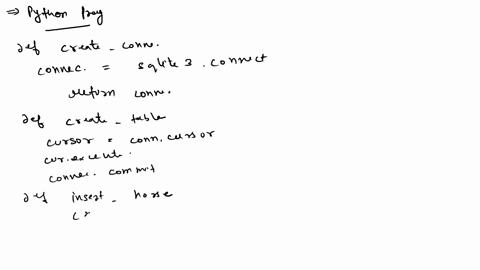 ⇒ Python
def create_conn.
connec. = sqlite3.connect
return conn.
def create_table
cursor = conn.cursor
cur.execute.
connec. commit
def insert_horse